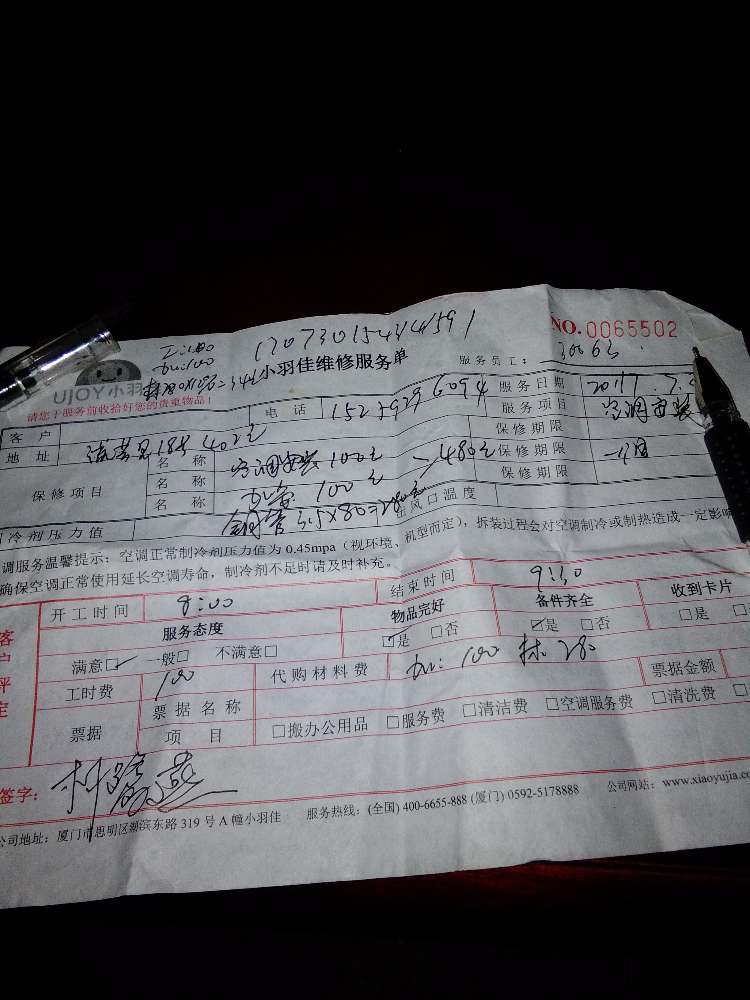 NO.0065502
小羽佳维修服务单
服务员工：
UJOY 小羽
请您于服务前收拾好您的贵重物品！
客户 电话 服务日期
服务项目 空调安装
地址 保修期限
保修项目 名称 空调安装 100元 480元 保修期限 一个月
名称 100元 保修期限
名称 铜管 3.5×80=280元
制冷剂压力值 出风口温度
调服务温馨提示：空调正常制冷剂压力值为 0.45mpa（视环境、机型而定），拆装过程会对空调制冷或制热造成一定影响
确保空调正常使用延长空调寿命，制冷剂不足时请及时补充。
开工时间 8:00 结束时间 9:30
服务态度 物品完好 备件齐全 收到卡片
满意☑ 一般□ 不满意□ ☑是 □否 ☑是 □否 □是
工时费 100 代购材料费 100 280 票据金额
票据 票据名称
项目 □搬办公用品 □服务费 □清洁费 □空调服务费 □清洗费
签字：
公司地址：厦门市思明区湖滨东路 319 号 A 幢小羽佳 服务热线：(全国) 400-6655-888 (厦门) 0592-5178888 公司网站：www.xiaoyujia.co